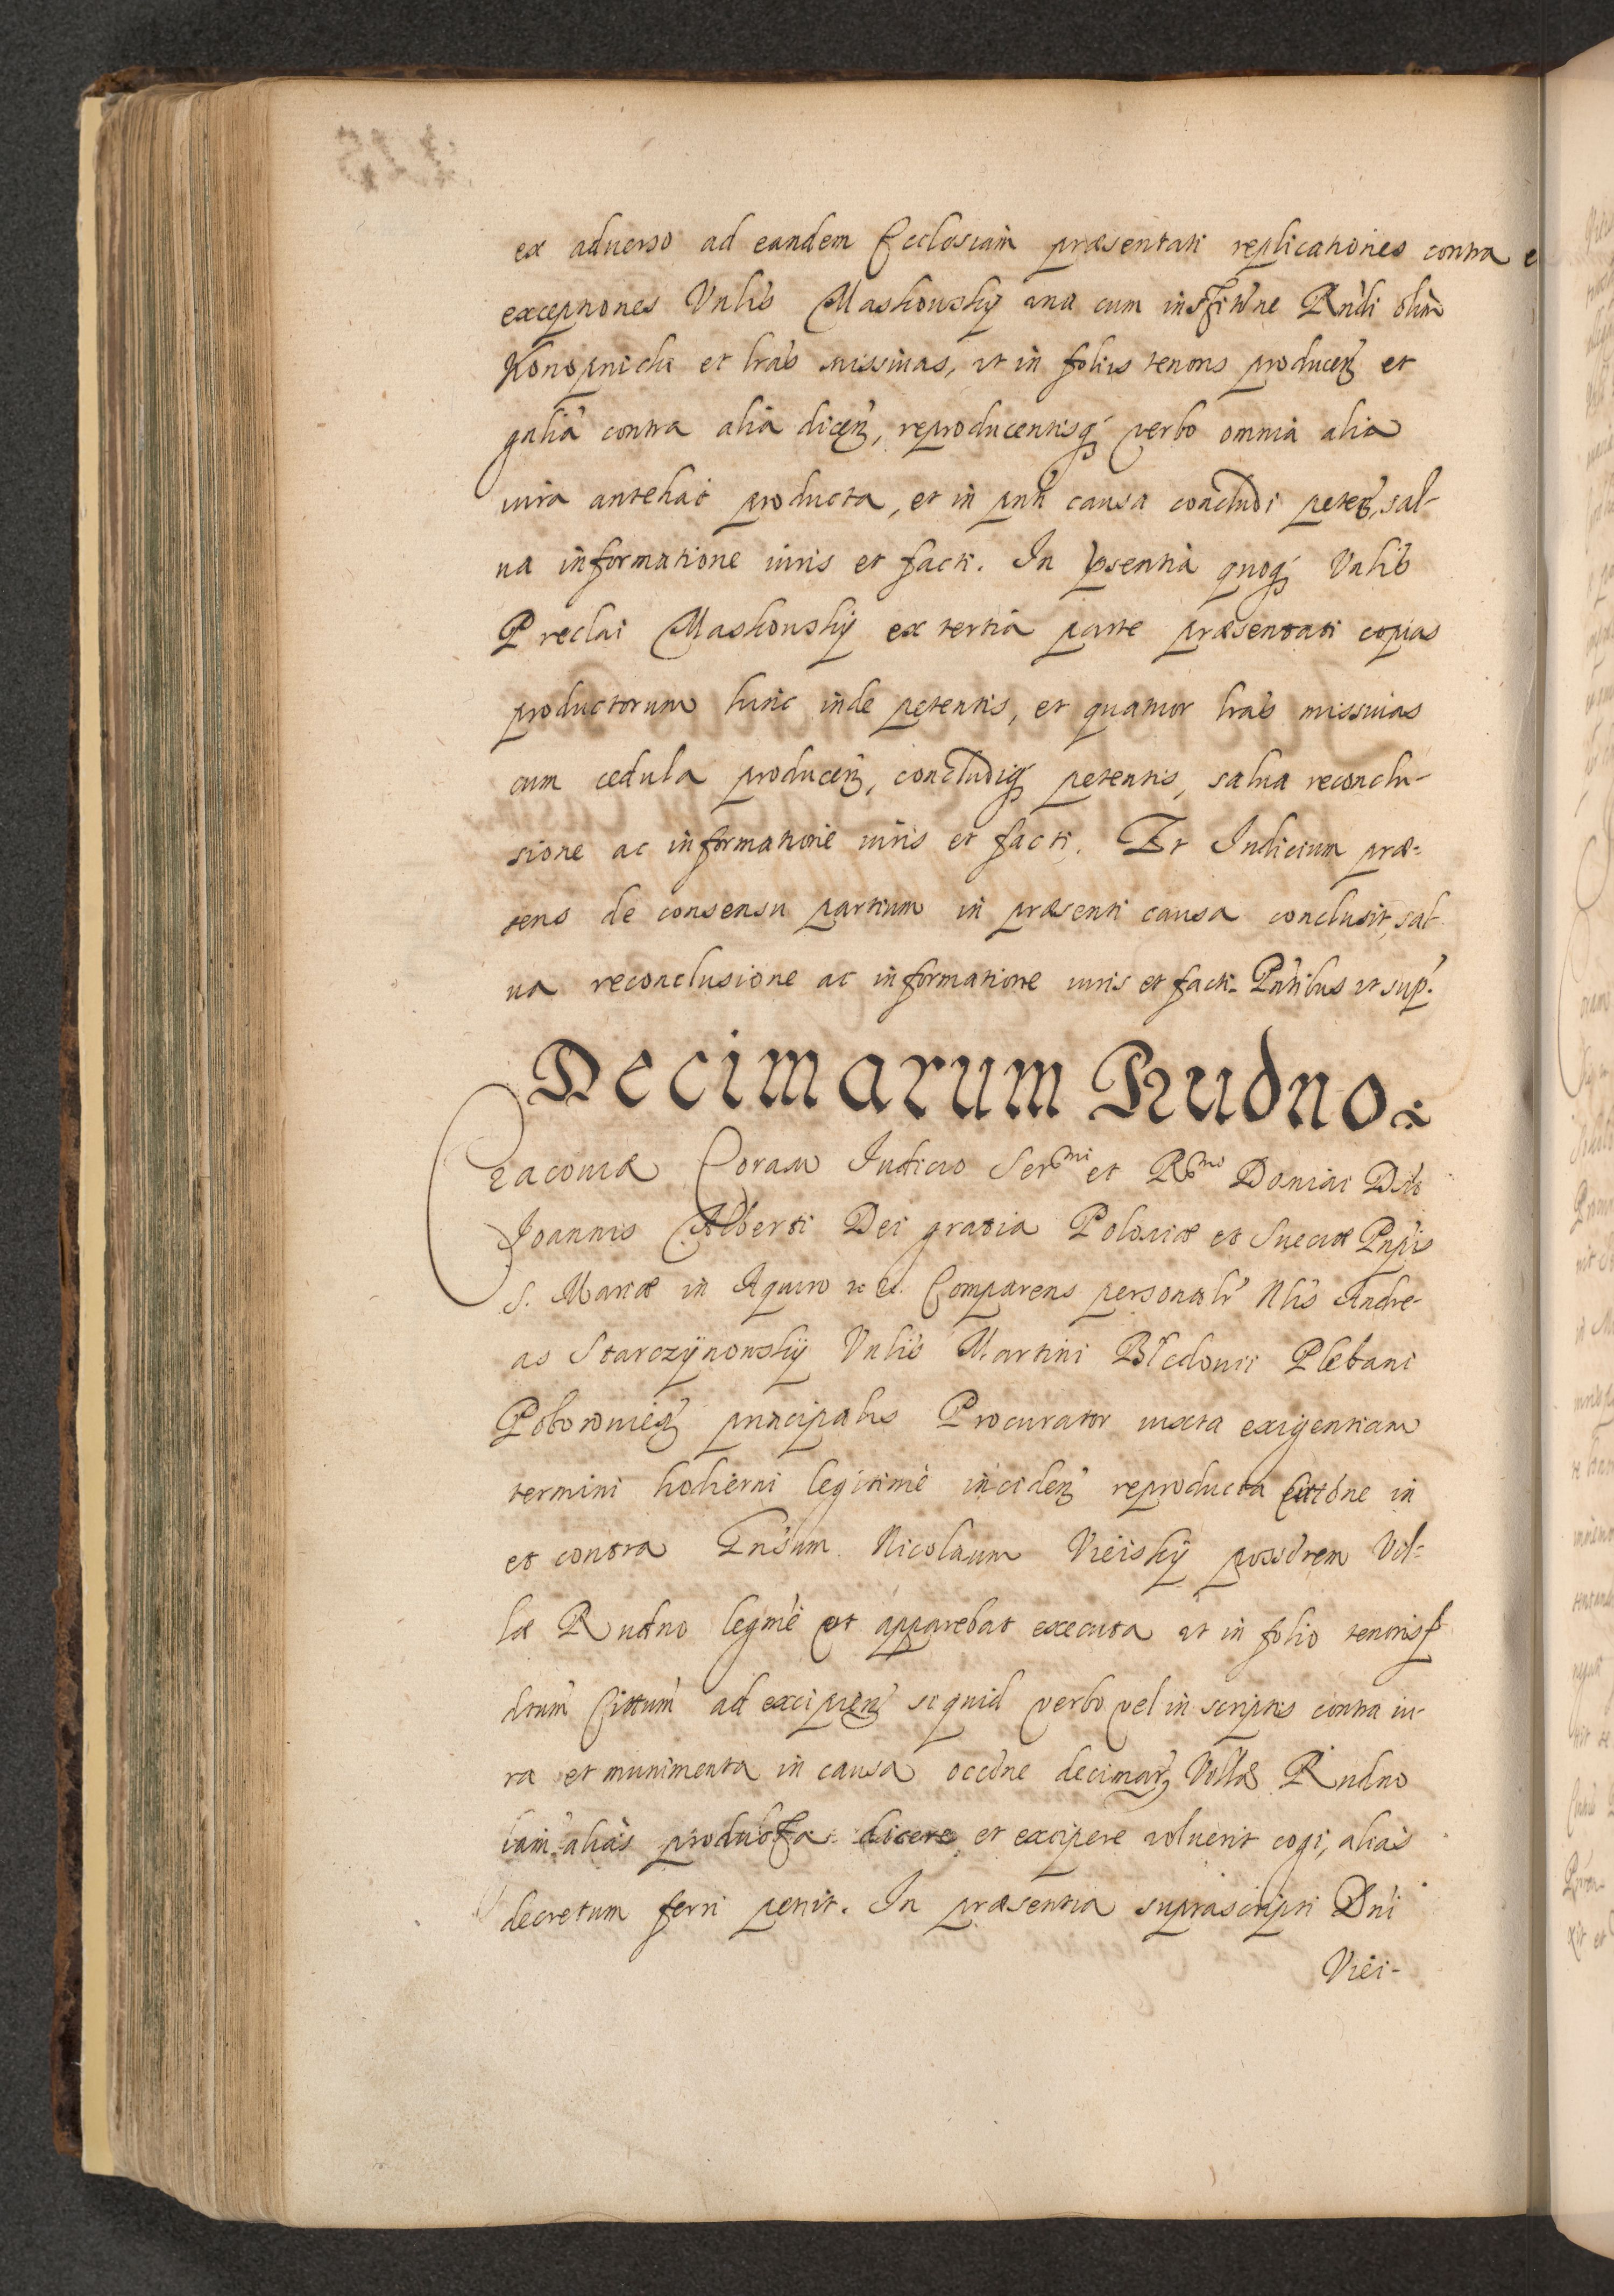 ex aduerso ad eandem Ecclesiam præsentati replicationes contra
exceptiones Vnlis Maskouskÿ una cum institõne Rndi olim
Konopnicki et lras missiuas, vt in folijs tenoris producen et
gnlia contra alia dicen, reproducentisq verbo omnia alia
iura antehac producta, et in pnti causa concludi peten, sal-
ua informatione iuris et facti. In psentia quoq Vnlis
Preclai Maskouskÿ ex tertia parte præsentati copias
productorum hinc inde petentis, et quatuor lras missiuas
cum cedula producen, concludiq petentis, salua reconclu-
sione ac informatione iuris et facti. Et Iudicium præ-
sens de consensu partium in præsenti causa conclusit, sal
ua reconclusione ac informatione iuris et facti. Pntibus vt sup.
Decimarum Rudno.
Cracouiæ Coram Iudicio Sermi et Rmo Domini Dni
Joannis Alberti Dei gratia Poloniæ et Sueciæ Pnpis
S. Mariæ in Aquiro Comparens personalr Nlis Andre-
as Starczÿnouskÿ Vnlis Martini Plebani
principalis Procurator iuxta exigentiam
termini hodierni legitimè inciden reproducta citõne in
et contra Gnsum Nicolaum Vieiskÿ possõrem Vil-
læ Rudno legmè vt apparebat executa vt in folio tenoris
dtum Cittum ad excipien siquid verbo vel in scriptis contra iu-
ra et munimenta in causa occõne decimar Villæ Rudno
iam aliàs producta dicere et excipere voluerit cogi, aliàs
decretum ferri petijt. In præsentia suprascripti Dni
Viei-